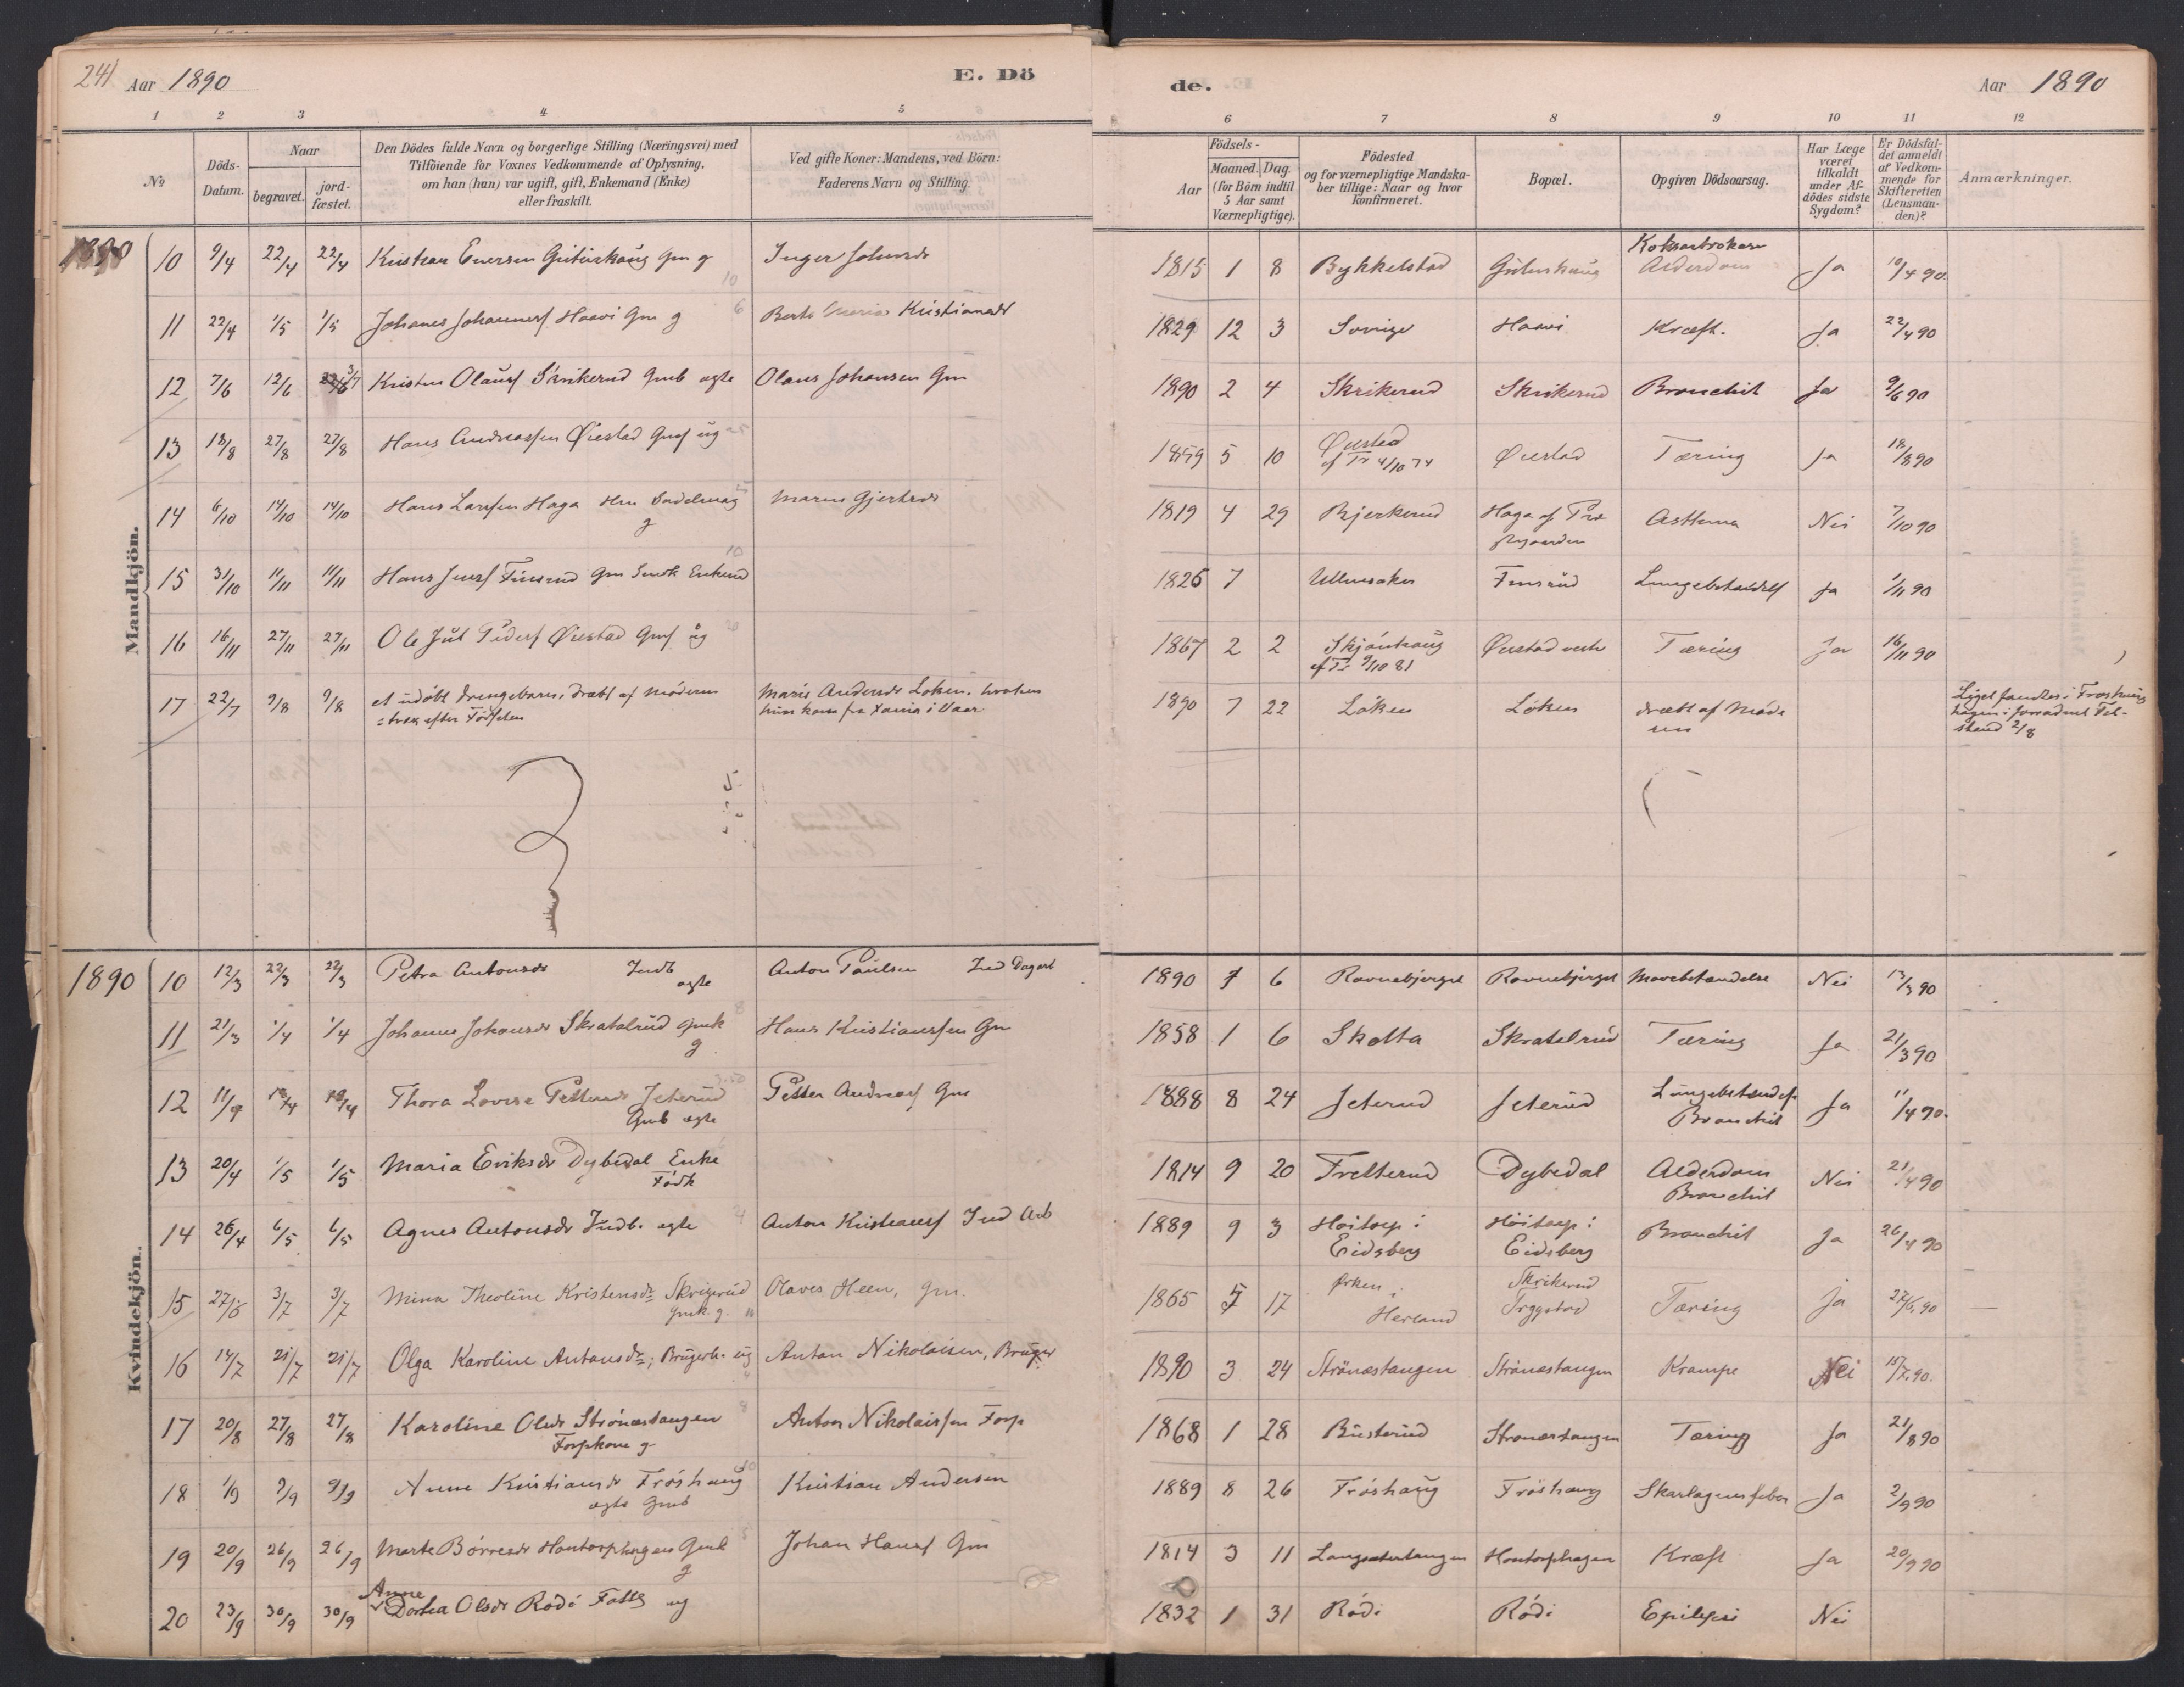 241 Aar 1890 E. Dö de. Aar 1890
1 2 3 4 5 6 7 8 9 10 11 12
No
Döds-Datum.
Naar
begravet.
jordfæstet.
Den Dödes fulde Navn og borgerlige Stilling (Næringsvei) med
Tilföiende for Voxnes Vedkommende af Oplysning,
om han (hun) var ugift, gift, Enkemand (Enke)
eller fraskilt.
Ved gifte Koner: Mandens, ved Börn:
Faderens Navn og Stilling.
Födsels-
Aar
Maaned. Dag.
(for Börn indtil
5 Aar samt
Værnepligtige).
Födested
og for værnepligtige Mandska-
ber tillige: Naar og hvor
konfirmeret.
Bopæl.
Opgiven Dödsaarsag.
Har Læge
været
tilkaldt
under Af-
dödes sidste
Sygdom?
Er Dödsfal-
det anmeldt
af Vedkom-
mende for
Skifteretten
(Lensman-
den)?
Anmærkninger.
Mandkjön.
1890 10 9/4 22/4 22/4 Gm g Inger 1815 1 8 Bykkelstad Alderdom Ja 10/4 90.
11 22/4 1/5 1/5 Johanes Haavi Gm g Kristiansdr 1829 12 3 Sverige Haavi Kræft. Ja 22/4 90
12 7/6 12/6 3/7 Olausf Skrikerud Gmb ægte Olaus Johansen Gm 1890 2 4 Skrikerud Skrikerud Bronchit Ja 9/6 90
13 18/8 27/8 27/8 Hans Andreassen Øiestad Gmf ug 1859 5 10 Øiestad
4/10 74 Øiestad Tæring Ja 18/8 90
14 6/10 14/10 14/10 Hans Larssen Haga Gjertsdr
g 1819 4 29 Bjerkerud Haga af
Asthma Nei 7/10 90
15 31/10 11/11 11/11 Hans Jensf Finsrud Gm 1826 7 Ullensaker Finsrud Ja 1/11 90
16 16/11 27/11 27/11 Ole Jul Pedersf Øiestad Gmf ug 1867 2 2 Skjönhaug
9/10 81 Øiestad vestr Tæring Ja 16/11 90
17 22/7 9/8 9/8 et udöbt Drengebarn, dræbt af Moderen
strax efter Födselen
Marie Andersdr Löken. hvorhen
hun kom fra Xania i Vaar
1890 7 22 Löken Löken dræbt af Mode
ren
Liget fandtes i Fröshaug
hagen i forraadnet Til-
stand 2/8
Kvindekjön.
1890 10 12/3 22/3 22/3 Petra Antonsdr Indb
ægte Anton Paulsen Ind Dagarb 1890 7 6 Ravnebjerget Ravnebjerget Mavebetændelse Nei 13/3 90
11 21/3 1/4 1/4 Johanne Johansdr Skratelrud Gmk
g. Hans Kristianssen Gm 1858 1 6 Skotta Skratelrud Tæring Ja 21/3 90
12 11/4 Thora Lovise Pettersdr Jeterud
Gmb ægte Petter Andreasf Gm 1888 8 24 Jeterud Jeterud Lungebetændelse
Bronchit Ja 11/4 90.
13 20/4 1/5 1/5 Maria Eriksdr Dybedal Enke
Födk 1814 9 20 Fretterud Dybedal Alderdom
Bronchit Nei 21/4 90
14 26/4 6/5 6/5 Agnes Antonsdr Indb. ægte Anton Kristiansf Ind Arb 1889 9 3 Höitorp i
Eidsberg Höitorp i
Eidsberg Bronchit Ja 26/4 90
15 27/6 3/7 3/7 Mina Theoline Kristensdr Skrigerud
Gmk. g. Olaves Heen, Gm. 1865 5 17 Ørken i
Herland Skrikerud
Trygstad Tæring ja 27/6. 90
16 14/7 21/7 21/7 Olga Karoline Antonsdr; Brugerb. ug Anton Nikolaisen, Bruger 1890 3 24 Strönæstangen Strönæstangen Krampe Nei 15/7. 90.
17 20/8 27/8 27/8 Karoline Olsdr Strönæstangen
Forpkone g Anton Nikolaissen Forp 1868 1 28 Busterud Strönæstangen Tæring Ja 21/8 90
18 1/9 9/9 9/9 Anne Kristiansdr Fröshaug
ægte Gmb Kristian Andersen 1889 8 26 Fröshaug Fröshaug Skarlagensfeber Ja 2/9 90
19 20/9 26/9 26/9 Marte Börresdr Hontorphagen Gmk
g Johan Hansf Gm 1814 3 11 Langsætertangen Hontorphagen Kræft Ja 20/9 90
20 23/9 30/9 30/9 Anne
Dortea Olsdr Rödi Fattg ug 1832 1 31 Rödi Rödi Epilepsi Nei